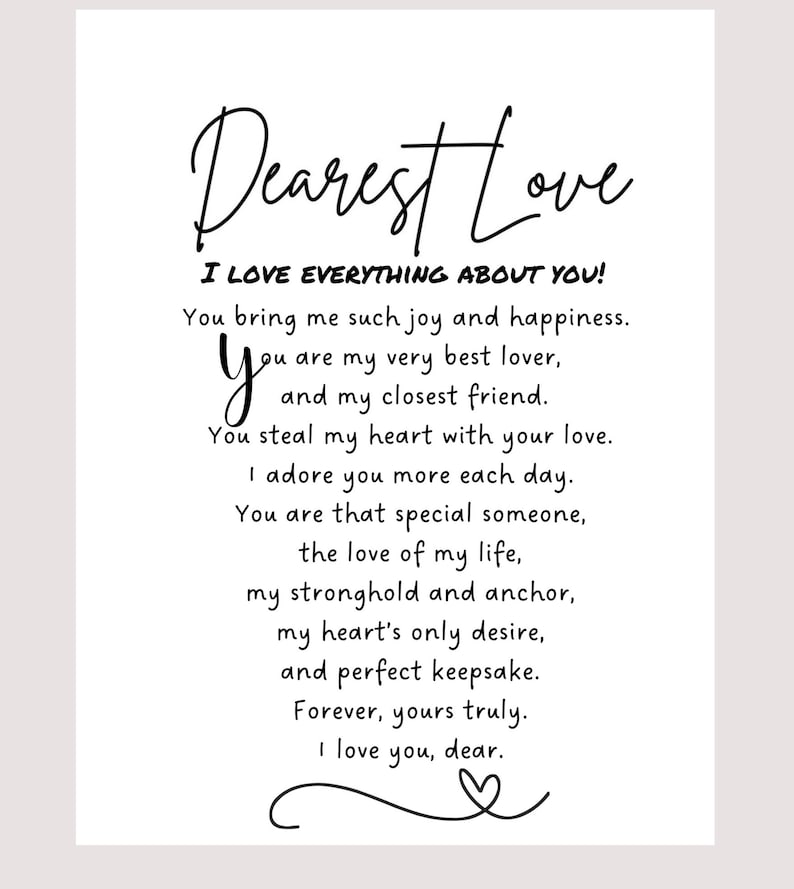 Dearest Love
I LOVE EVERYTHING ABOUT YOU!
You bring me such joy and happiness.
You are my very best lover,
and my closest friend.
You steal my heart with your love.
I adore you more each day.
You are that special someone,
the love of my life,
my stronghold and anchor,
my heart's only desire,
and perfect keepsake.
Forever, yours truly.
I love you, dear.